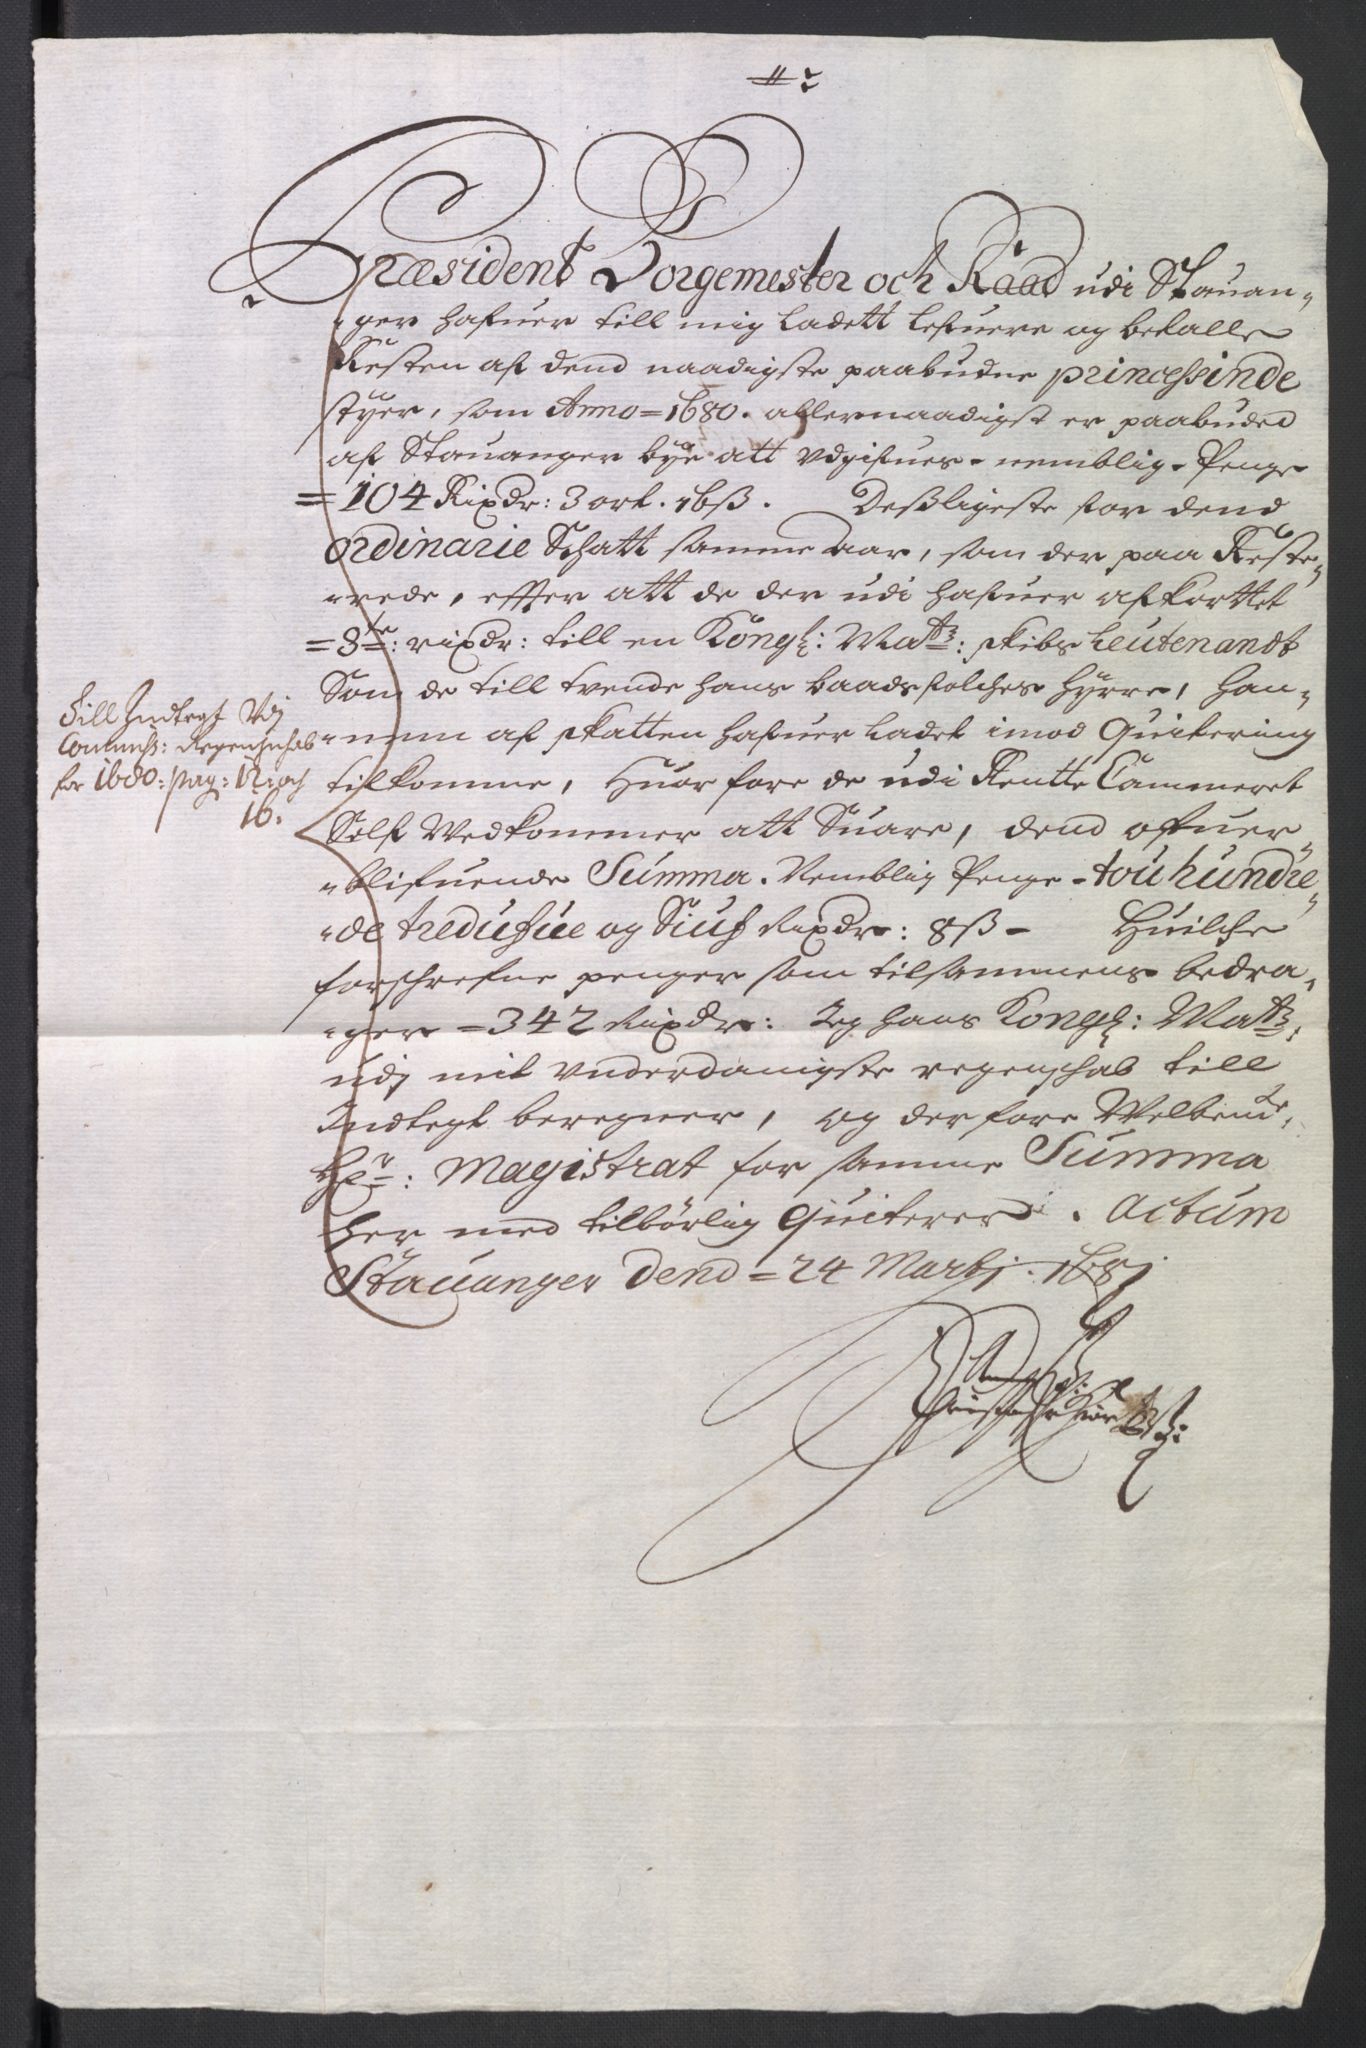 Præsident Borgemester och Raad udi Stauan-
ger hafuer till mig ladett lefuere og betalle
Resten af dend naadigste paabudne princessinde
styer, som Anno 1680. allernaadigst er paabuded
af Stauanger bye att udgifues, nemblig Penge
104 Rixdr: 3 ort. 16 ß. Desligeste for dend
Ordinarie Schatt samme aar, som der paa Reste-
rede, effter att de der udi hafuer afkorttet
8te: rixdr: till en Köngl: Matts: skibs Leutenandt
Som de till tvende hans baadsfolches Hyrre, Han-
nem af skatten hafuer ladet imod Quitering
tilkomme, Huorfore de udi Rentte Cammeret
Self Vedkommer att Suare, dend ofuer-
blifuende Summa. Nemblig Penge - tou hundre-
de tredufue og Siuf Rixdr: 8 ß - Huilche
forschrefne penger som tilsammens bedra-
ger 342 Rixdr: Jeg hans Kongl: Matts:
udj mit underdanigste regenschab till
Indtegt beregner, og derfore Welbemte:
Hr: Magistrat for samme Summa
her med tilbörlig Quiterer. Actum
Stauanger Dend 24 Martij. 1681
Till Indtegt Vdj
Commiss: Regenschab
for 1680: pag: 12: och
16.